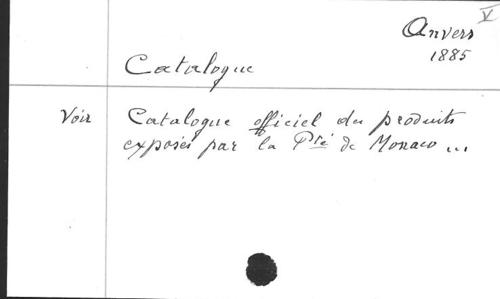 V
Anvers
1885
Catalogue
Voir Catalogue officiel des produits
exposés par la Pté de Monaco ...